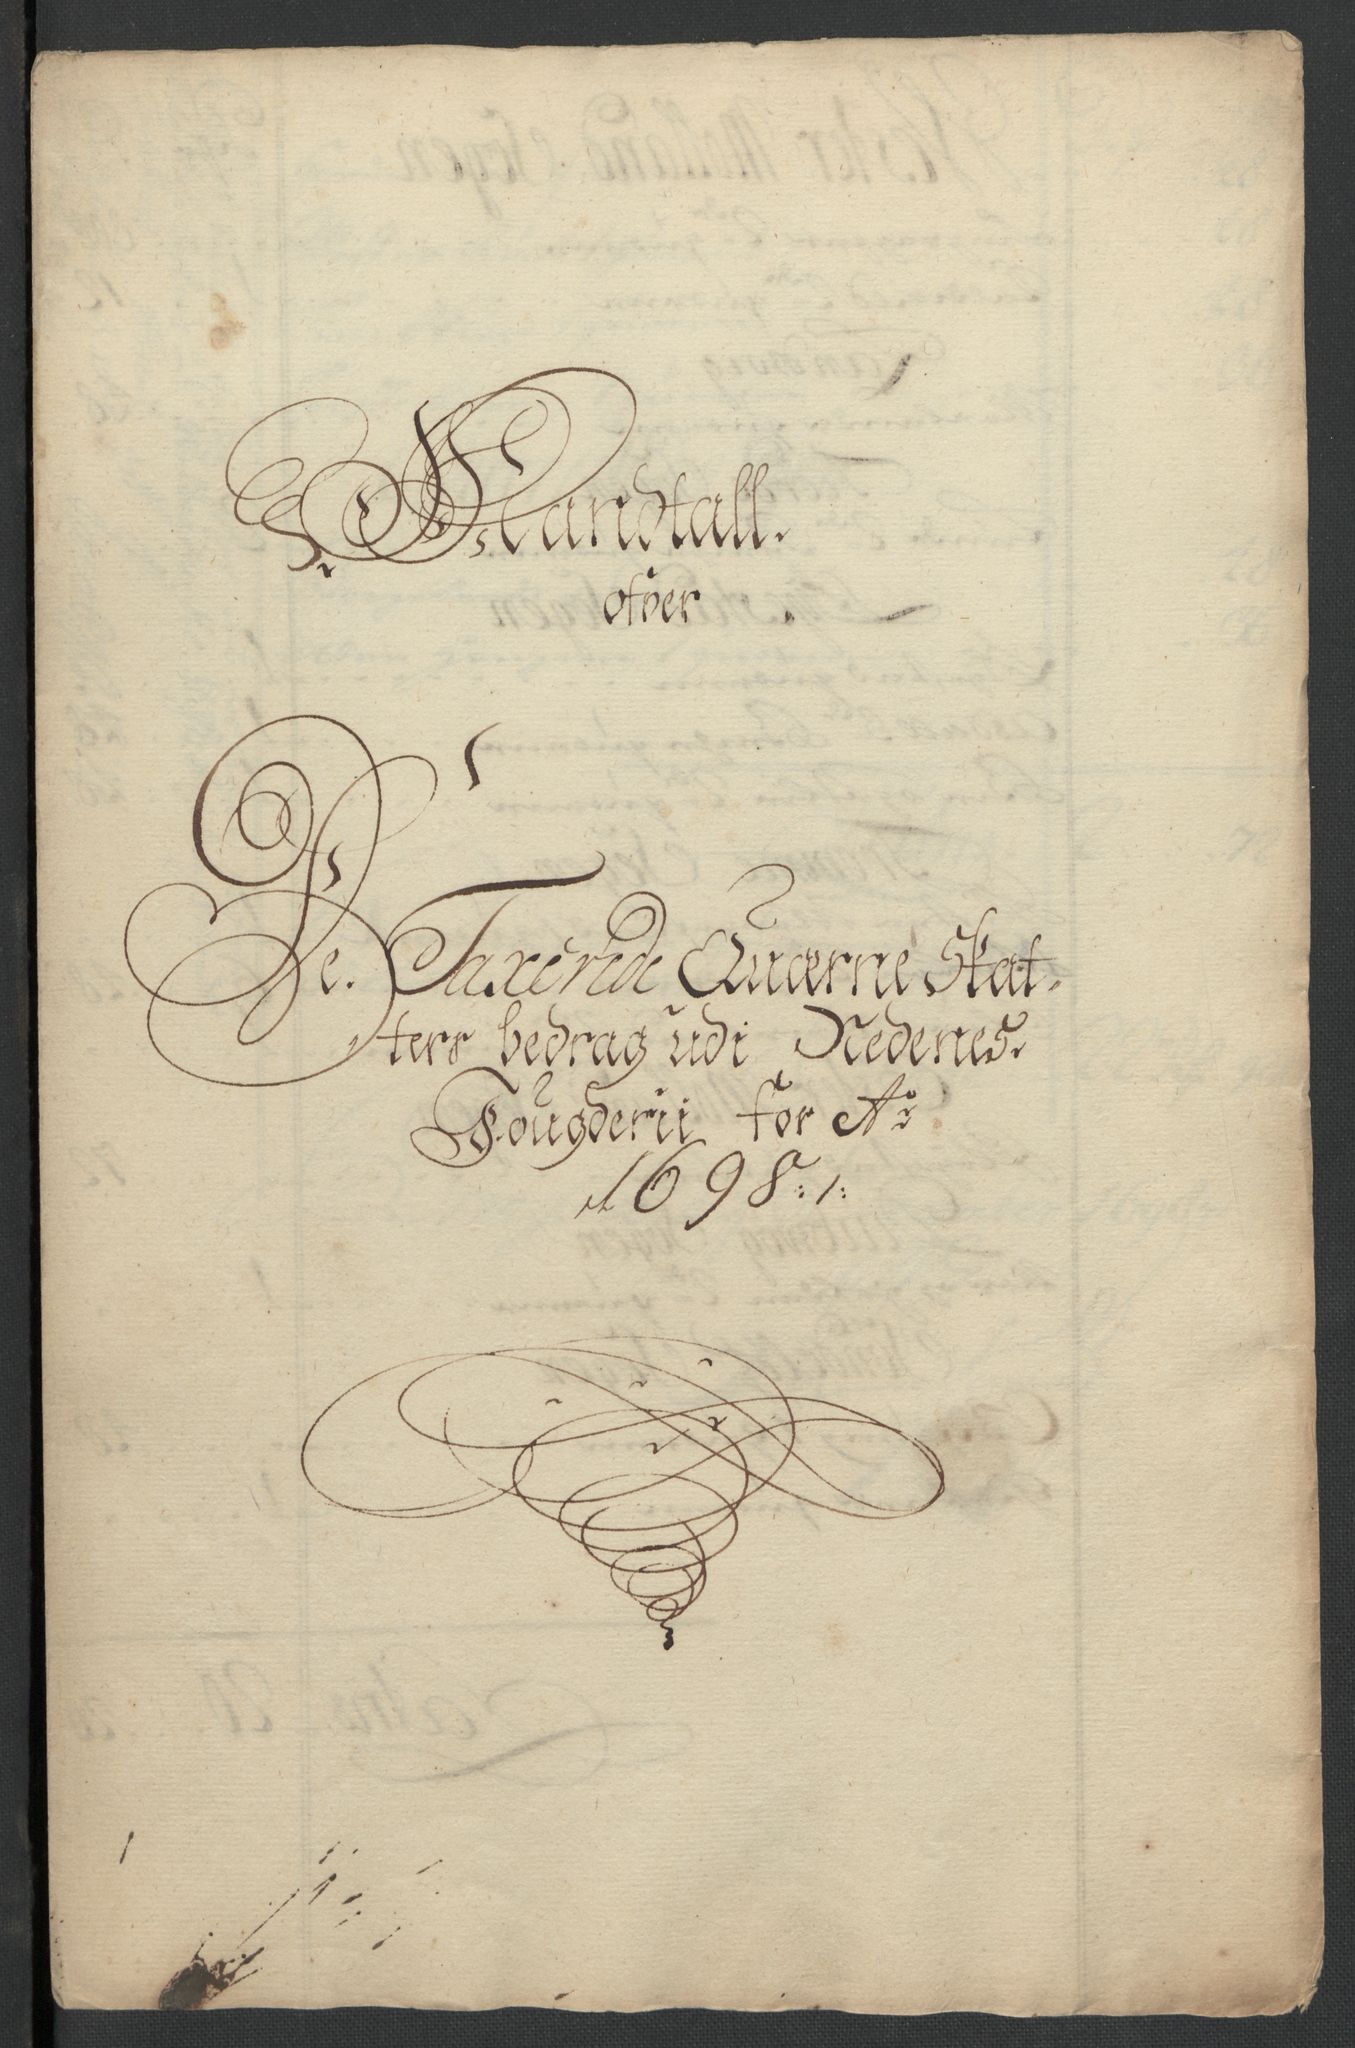 Mandtall.
ofver
De Taxerede Quærne Skat-
ters bedrag udi Nedenes
Fougderii for Ao
1698:/: